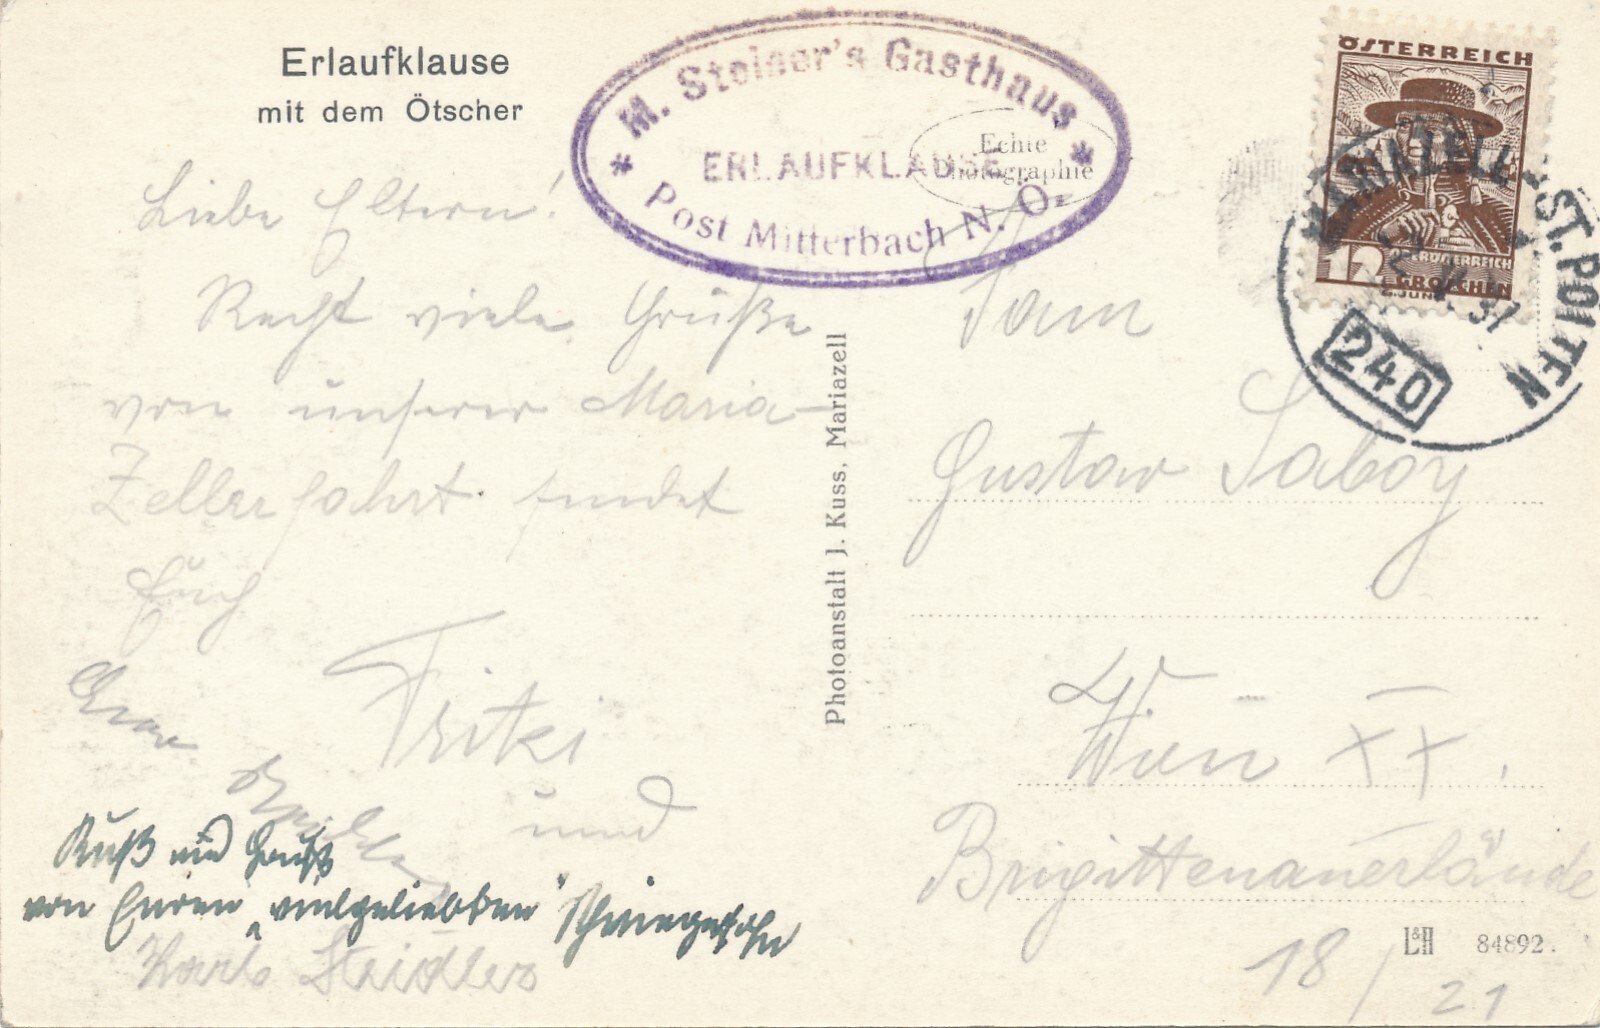 Erlaufklause
mit dem Ötscher
M. Steiner's Gasthaus
ERLAUFKLAUSE
Post Mitterbach N. Ö.
Echte
Photographie
ÖSTERREICH
12
GROSCHEN
MARIAZELL - ST. PÖLTEN
37
240
Liebe Eltern!
Recht viele Grüße
von unserer Maria-
Zellerfahrt sendet
Euch
Fritzi
und
Kuß und Gruß
von Euren "vielgeliebten" Schwiegersohn
Karl
Photoanstalt J. Kuss, Mariazell
Fam
Gustav Saboy
Wien XX.
Brigittenauerlände
18/21
L&H 84892.